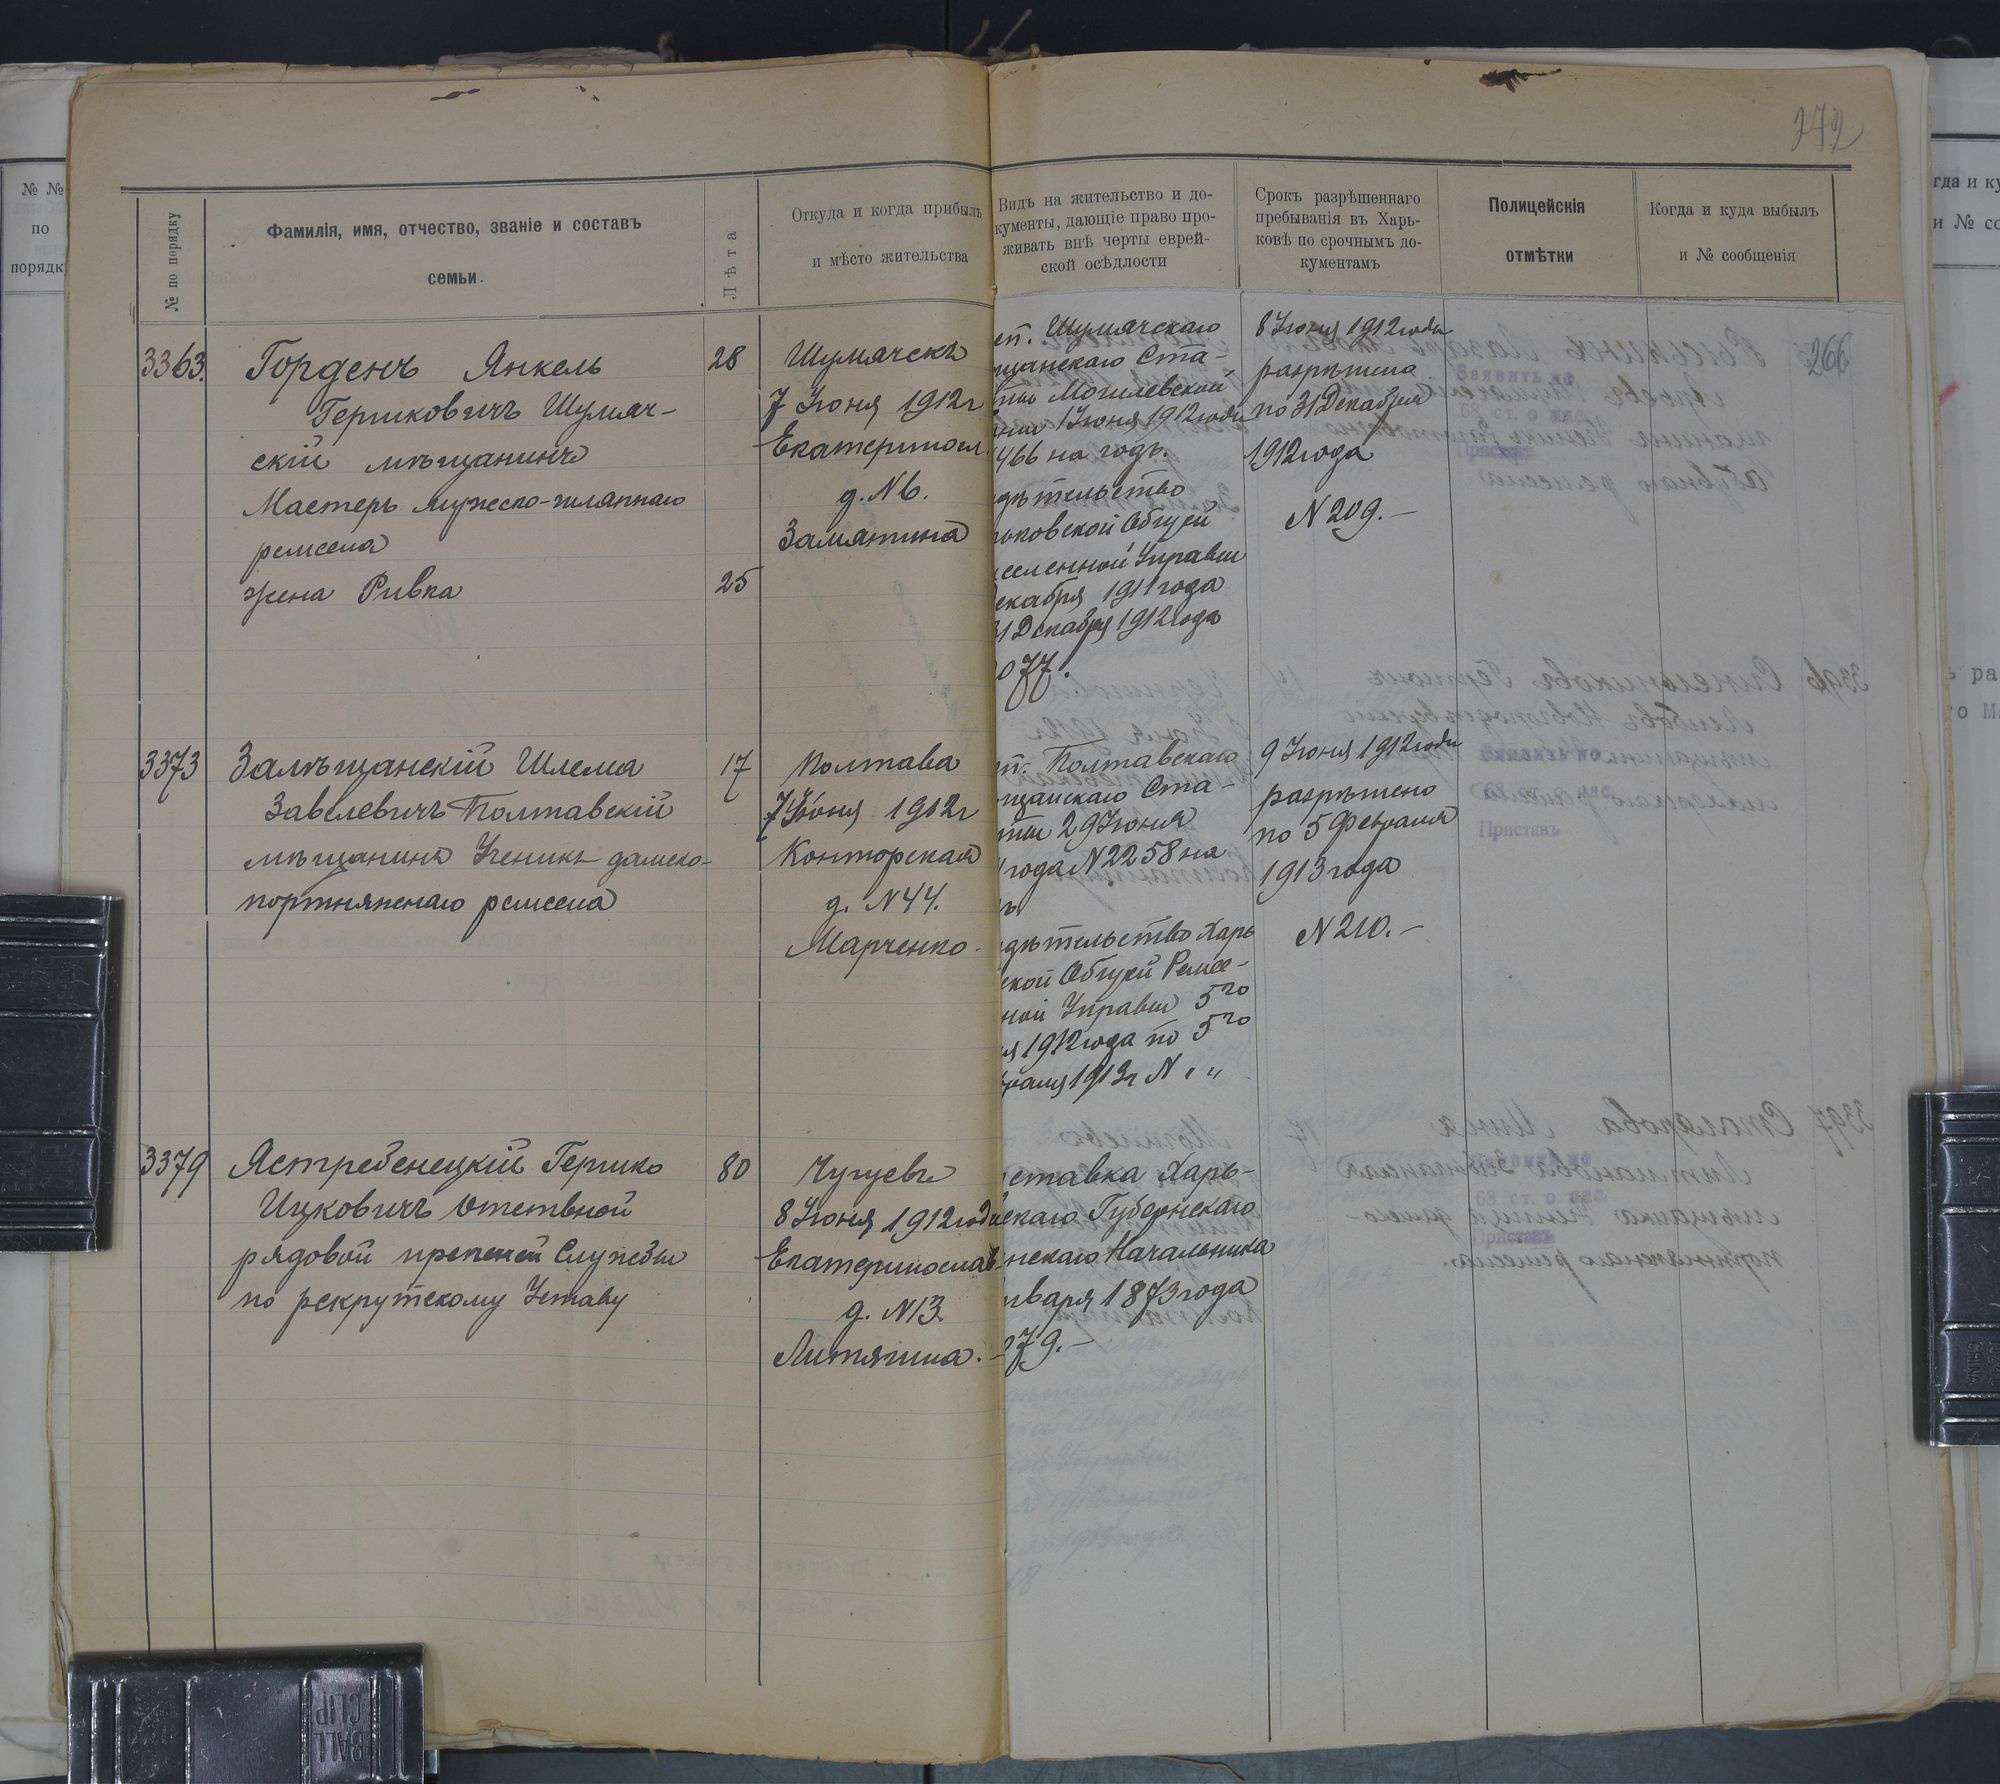 272
№ по порядку
Фамилія, имя, отчество, званіе и составъ
семьи.
Лѣта
Откуда и когда прибылъ
и мѣсто жительства
Видъ на жительство и до-
кументы, дающіе право про-
живать внѣ черты еврей-
ской осѣдлости
Срокъ разрѣшеннаго
пребыванія въ Харь-
ковѣ по срочнымъ до-
кументамъ
Полицейскія
отмѣтки
Когда и куда выбылъ
и № сообщенія
№ №
по
порядк
3363.
Горденъ Янкель
Гершковичъ Шумяч-
скій мѣщанинъ
Мастеръ мужеско-шляпнаго
ремесла
жена Ривка
28
25
Шумячскъ
7 Іюня 1912г
Екатериносл.
д. N6.
Замятина
еп. Шумячскаго
щанскаго Ста-
Могилевской
1 Іюня 1912 года
466 на годъ.
дѣтельство
ьковской Общей
есленной Управы
екабря 1911 года
31 Декабря 1912 года
077.
8 Іюня 1912 года
разрѣшено
по 31 Декабря
1912 года
N 209.-
266
3373
Залѣщанскій Шлема
Завелевичъ Полтавскій
мѣщанинъ Ученикъ дамско-
портняжнаго ремесла
17
Полтава
7 Іюня 1912г
Конторская
д. N44.
Марченко.
Полтавскаго
щанскаго Ста-
29 Іюня
года N 2258 на
ъ
дѣтельство Харь
ской Общей Ремес-
ной Управы 5го
я 1912 года по 5го
враля 1913г N „ „
9 Іюня 1912 года
разрѣшено
по 5 Февраля
1913 года
N 210.-
3379
Ястребенецкій Гершко
Ицковичъ Отставной
рядовой прежней Службы
по рекрутскому Уставу
80
Чугуевъ
8 Іюня 1912 года
Екатеринослав.
д. N13.
Литягина.-
ставка Харь-
скаго Губернскаго
нскаго Начальника
нваря 1873 года
279.-